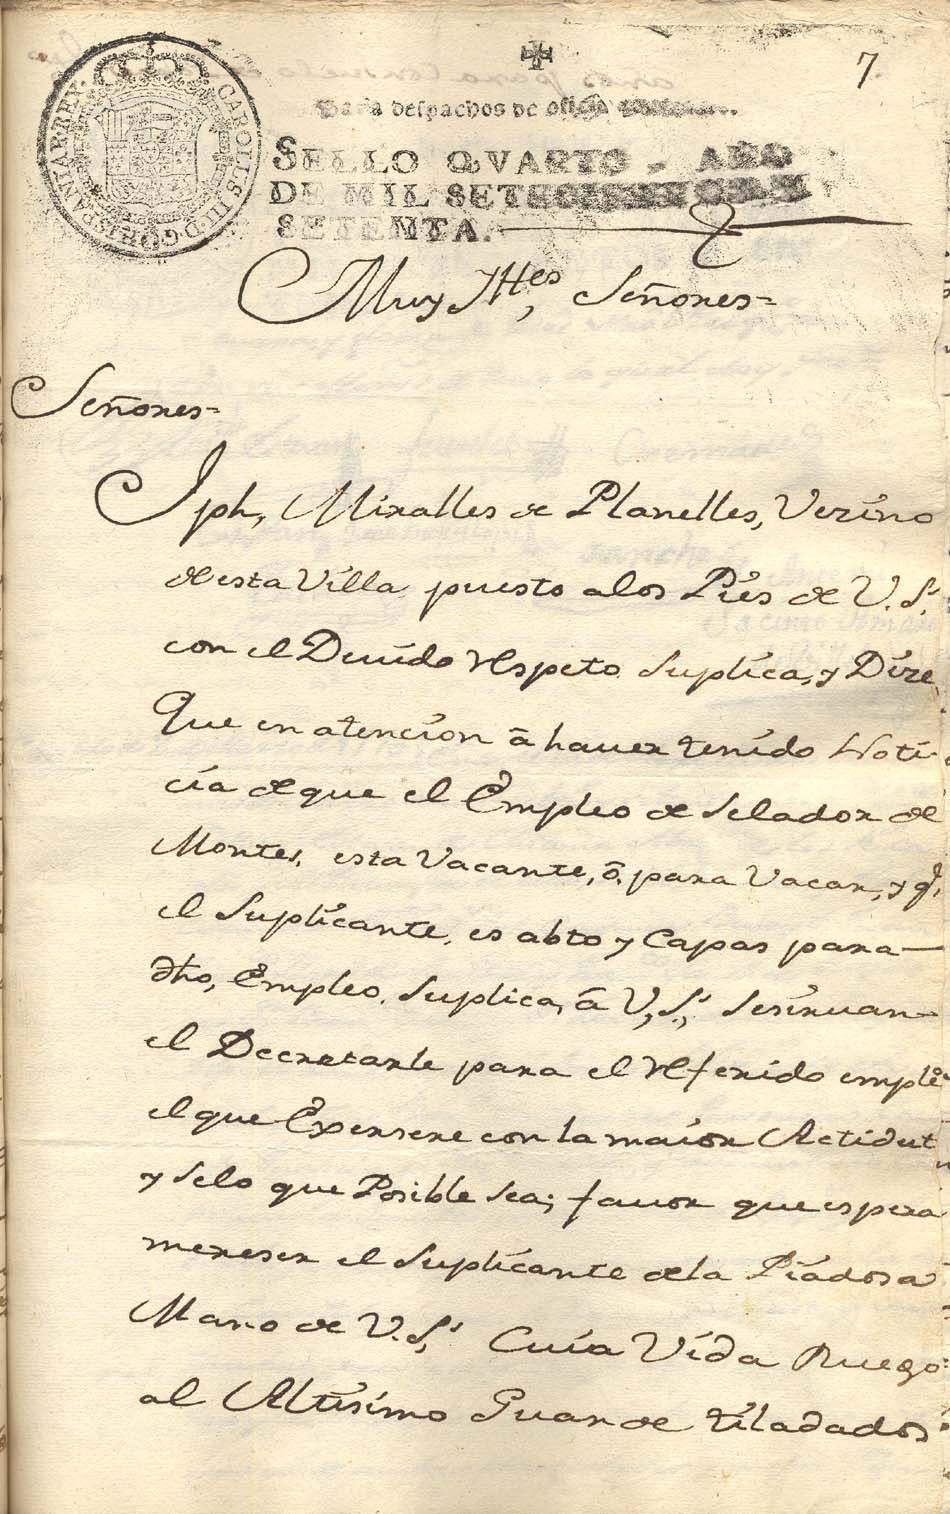 7
CAROLUS III D G HISPANIAR REX
Para despachos de oficio
SELLO QVARTO, AÑO
DE MIL SETECIENTOS
SETENTA.
Muy Yttes, Señores=
Señores=
Jph, Miralles de Planelles, Vezino
de esta Villa puesto a los Piés de V.Ss.
con el Deuido respeto Suplica, y Dize
Que en atencion â hauer tenido Noti-
cia de que el Empleo de Selador de
Montes, esta Vacante, ô, para Vacar, y q.
el Suplicante, es abto y Capas para
dho, Empleo, Suplica, â V,S,s Sesiruan
el Decretarle para el referido empleo
el que Exersere con la maior Actidut
y Selo que Posible sea; fauor que espera
mereser el Suplicante de la Piadosa
Mano de V.Ss. Cuia Vida Ruego
al Altisimo Guarde tiladados